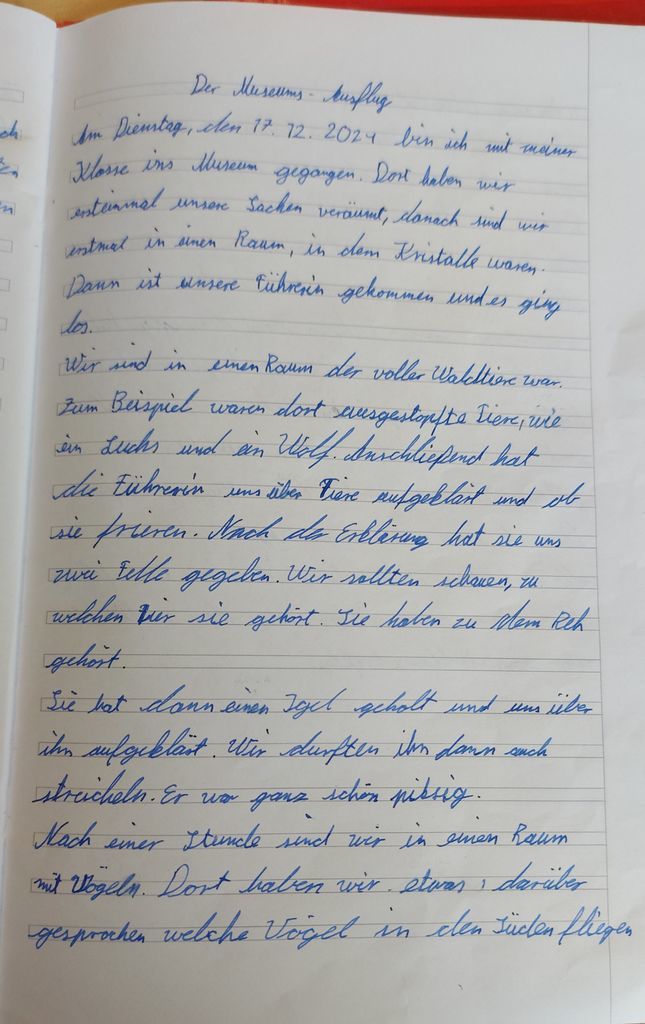 Der Museums-Ausflug
Am Dienstag, den 17.12.2024 bin ich mit meiner
Klasse ins Museum gegangen. Dort haben wir
ersteinmal unsere Sachen veräumt, danach sind wir
erstmal in einen Raum, in dem Kristalle waren.
Dann ist unsere Führerin gekommen und es ging
los.
Wir sind in einen Raum der voller Waldtiere war.
Zum Beispiel waren dort ausgestopfte Tiere, wie
ein Luchs und ein Wolf. Anschließend hat
die Führerin uns über Tiere aufgeklärt und ob
sie frieren. Nach der Erklärung hat sie uns
zwei Felle gegeben. Wir sollten schauen, zu
welchen Tier sie gehört. Sie haben zu dem Reh
gehört.
Sie hat dann einen Igel geholt und uns über
ihn aufgeklärt. Wir durften ihn dann auch
streicheln. Er war ganz schön piksig.
Nach einer Stunde sind wir in einen Raum
mit Vögeln. Dort haben wir etwas darüber
gesprochen welche Vögel in den Süden fliegen